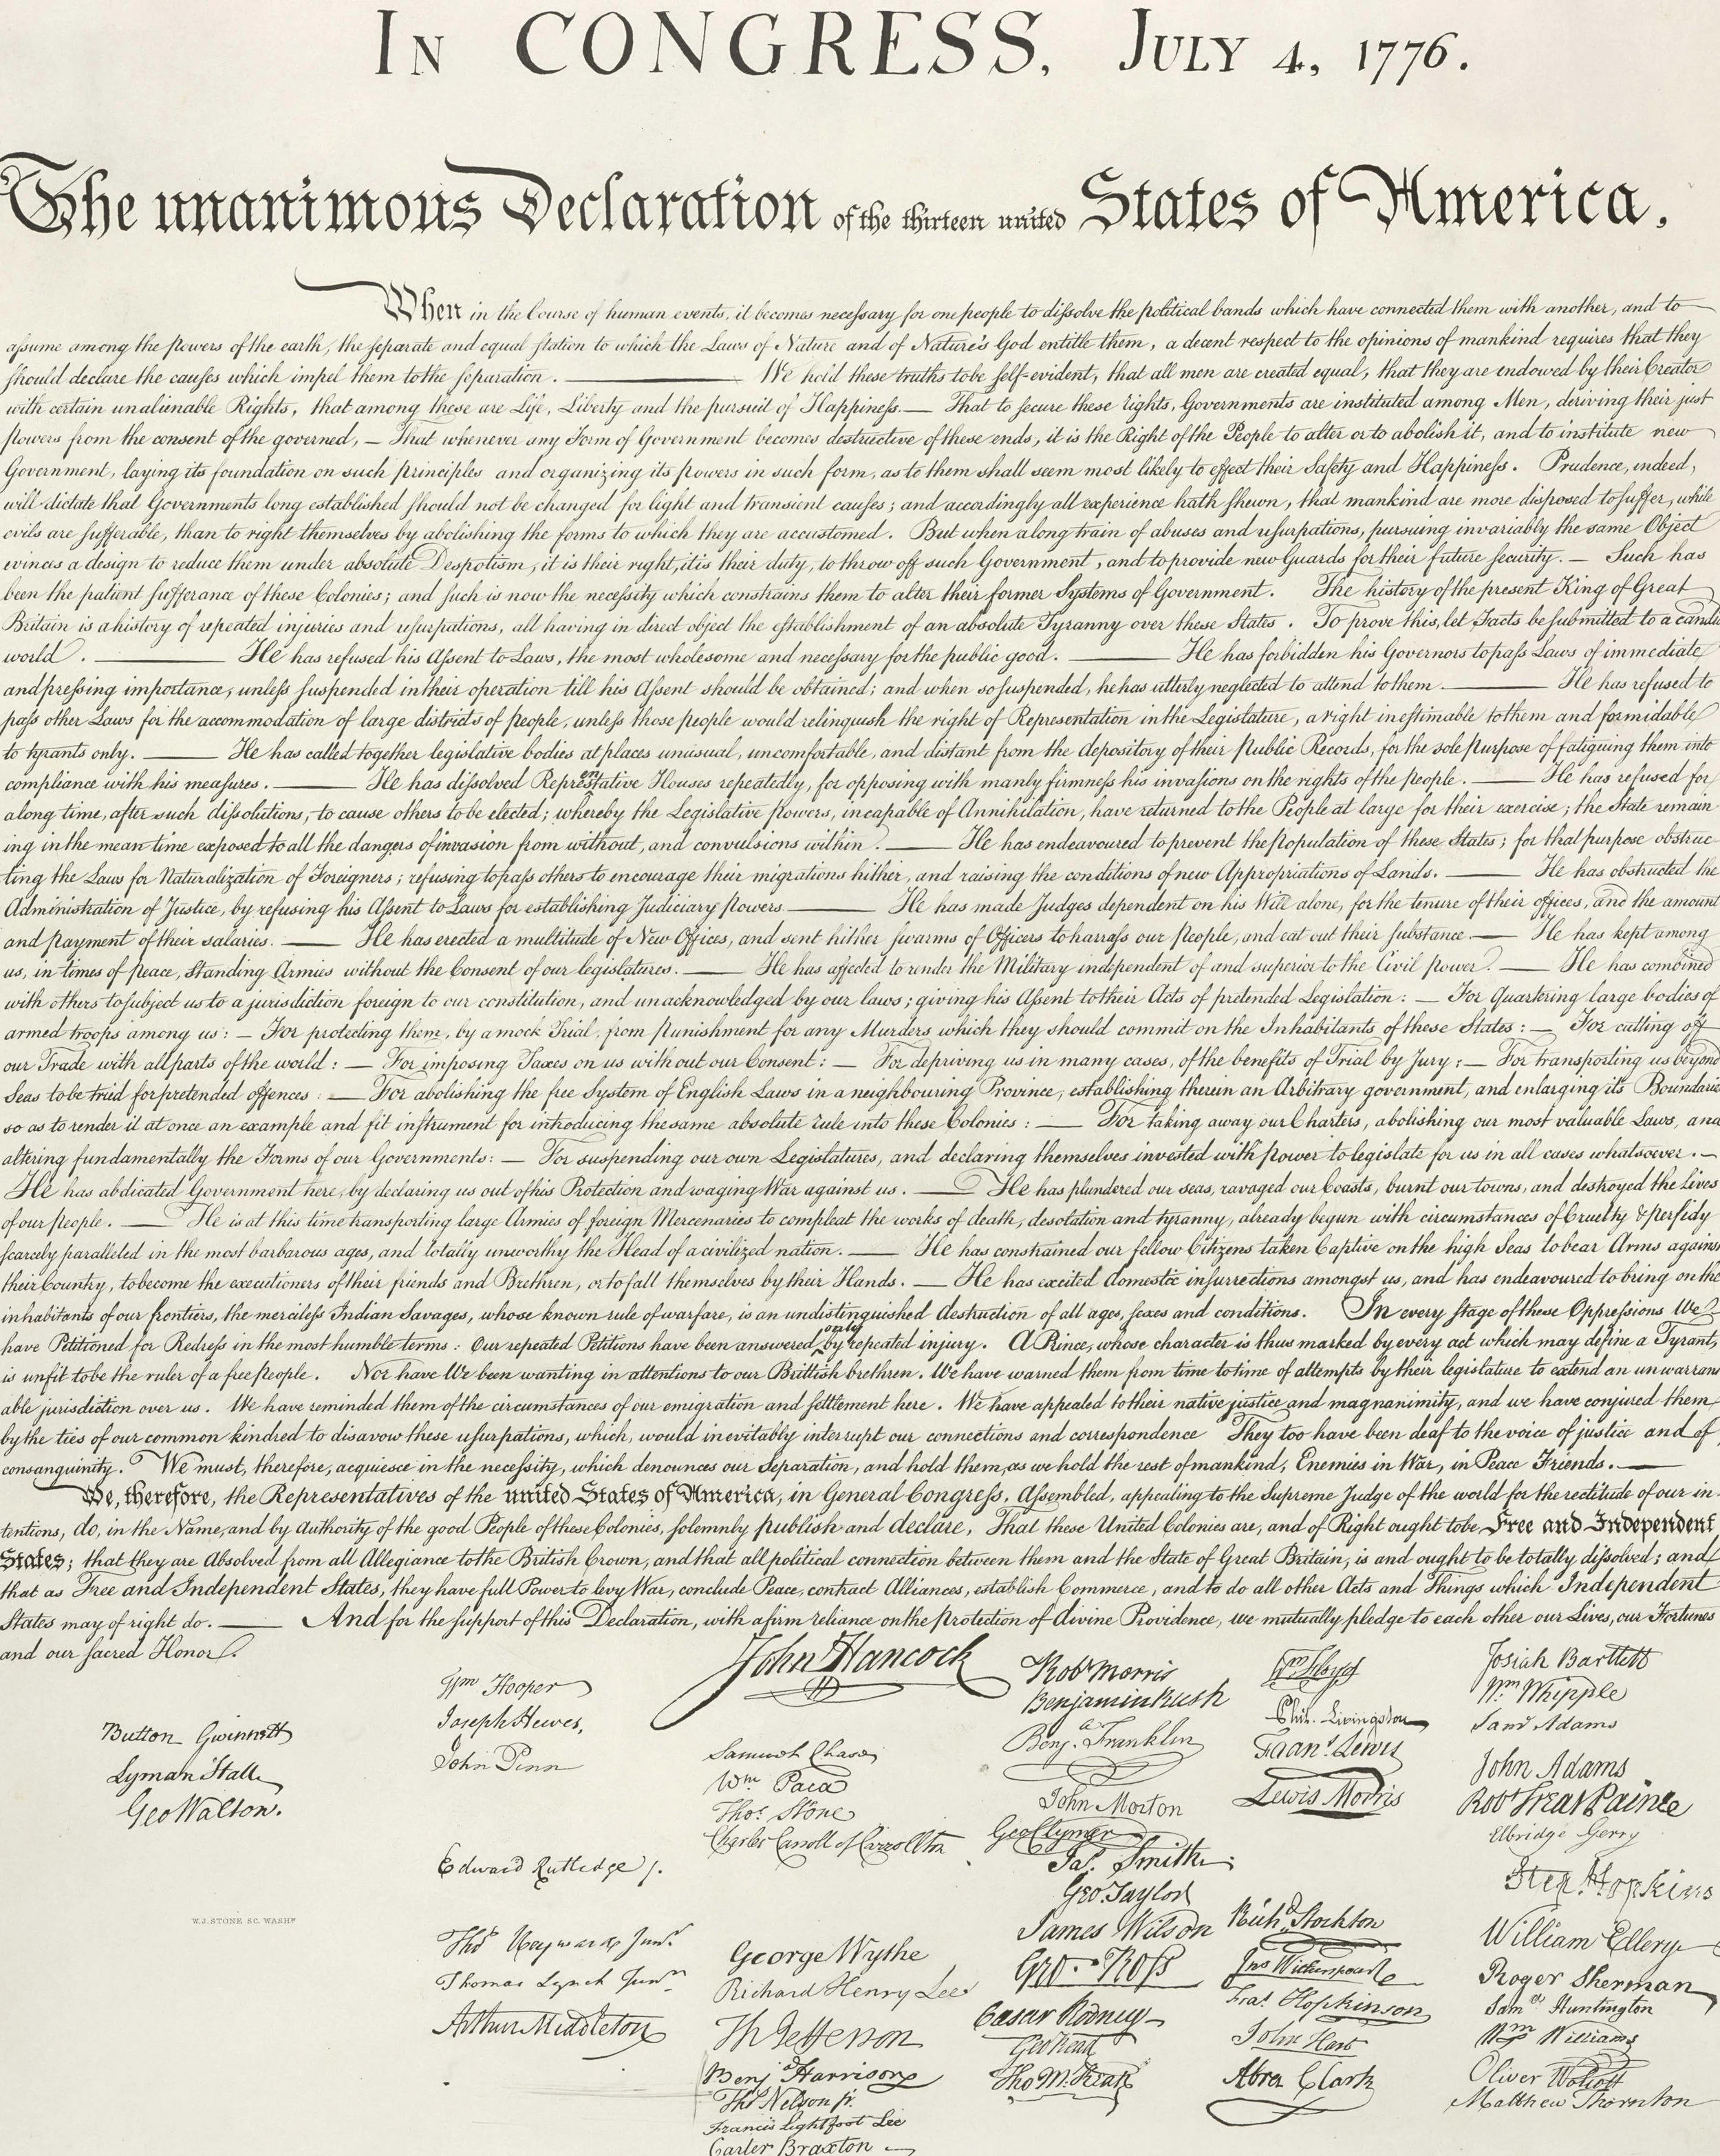 IN CONGRESS, JULY 4, 1776.
The unanimous Declaration of the thirteen united States of America,
When in the Course of human events, it becomes necessary for one people to dissolve the political bands which have connected them with another, and to
assume among the powers of the earth, the separate and equal station to which the Laws of Nature and of Nature's God entitle them, a decent respect to the opinions of mankind requires that they
should declare the causes which impel them to the separation. ——— We hold these truths to be self-evident, that all men are created equal, that they are endowed by their Creator
with certain unalienable Rights, that among these are Life, Liberty and the pursuit of Happiness.— That to secure these rights, Governments are instituted among Men, deriving their just
powers from the consent of the governed, — That whenever any Form of Government becomes destructive of these ends, it is the Right of the People to alter or to abolish it, and to institute new
Government, laying its foundation on such principles and organizing its powers in such form, as to them shall seem most likely to effect their Safety and Happiness. Prudence, indeed,
will dictate that Governments long established should not be changed for light and transient causes; and accordingly all experience hath shewn, that mankind are more disposed to suffer, while
evils are sufferable, than to right themselves by abolishing the forms to which they are accustomed. But when a long train of abuses and usurpations, pursuing invariably the same Object
evinces a design to reduce them under absolute Despotism, it is their right, it is their duty, to throw off such Government, and to provide new Guards for their future security. — Such has
been the patient sufferance of these Colonies; and such is now the necessity which constrains them to alter their former Systems of Government. The history of the present King of Great
Britain is a history of repeated injuries and usurpations, all having in direct object the establishment of an absolute Tyranny over these States. To prove this, let Facts be submitted to a candid
world. ——— He has refused his Assent to Laws, the most wholesome and necessary for the public good. ——— He has forbidden his Governors to pass Laws of immediate
and pressing importance, unless suspended in their operation till his Assent should be obtained; and when so suspended, he has utterly neglected to attend to them. ——— He has refused to
pass other Laws for the accommodation of large districts of people, unless those people would relinquish the right of Representation in the Legislature, a right inestimable to them and formidable
to tyrants only. ——— He has called together legislative bodies at places unusual, uncomfortable, and distant from the depository of their Public Records, for the sole purpose of fatiguing them into
compliance with his measures. ——— He has dissolved Representative Houses repeatedly, for opposing with manly firmness his invasions on the rights of the people. ——— He has refused for
a long time, after such dissolutions, to cause others to be elected; whereby the Legislative powers, incapable of Annihilation, have returned to the People at large for their exercise; the State remain
ing in the mean time exposed to all the dangers of invasion from without, and convulsions within. ——— He has endeavoured to prevent the population of these States; for that purpose obstruc
ting the Laws for Naturalization of Foreigners; refusing to pass others to encourage their migrations hither, and raising the conditions of new Appropriations of Lands. ——— He has obstructed the
Administration of Justice, by refusing his Assent to Laws for establishing Judiciary powers. ——— He has made Judges dependent on his Will alone, for the tenure of their offices, and the amount
and payment of their salaries. ——— He has erected a multitude of New Offices, and sent hither swarms of Officers to harrass our people, and eat out their substance. —— He has kept among
us, in times of peace, Standing Armies without the Consent of our legislatures. ——— He has affected to render the Military independent of and superior to the Civil power. —— He has combined
with others to subject us to a jurisdiction foreign to our constitution, and unacknowledged by our laws; giving his Assent to their Acts of pretended Legislation: — For Quartering large bodies of
armed troops among us: — For protecting them, by a mock Trial, from punishment for any Murders which they should commit on the Inhabitants of these States: — For cutting off
our Trade with all parts of the world: — For imposing Taxes on us without our Consent: — For depriving us in many cases, of the benefits of Trial by Jury: — For transporting us beyond
Seas to be tried for pretended offences: — For abolishing the free System of English Laws in a neighbouring Province, establishing therein an Arbitrary government, and enlarging its Boundaries
so as to render it at once an example and fit instrument for introducing the same absolute rule into these Colonies: —— For taking away our Charters, abolishing our most valuable Laws, and
altering fundamentally the Forms of our Governments: — For suspending our own Legislatures, and declaring themselves invested with power to legislate for us in all cases whatsoever. —
He has abdicated Government here, by declaring us out of his Protection and waging War against us. —— He has plundered our seas, ravaged our Coasts, burnt our towns, and destroyed the lives
of our people. —— He is at this time transporting large Armies of foreign Mercenaries to compleat the works of death, desolation and tyranny, already begun with circumstances of Cruelty & perfidy
scarcely paralleled in the most barbarous ages, and totally unworthy the Head of a civilized nation. —— He has constrained our fellow Citizens taken Captive on the high Seas to bear Arms against
their Country, to become the executioners of their friends and Brethren, or to fall themselves by their Hands. —— He has excited domestic insurrections amongst us, and has endeavoured to bring on the
inhabitants of our frontiers, the merciless Indian Savages, whose known rule of warfare, is an undistinguished destruction of all ages, sexes and conditions. In every stage of these Oppressions We
have Petitioned for Redress in the most humble terms: Our repeated Petitions have been answered only by repeated injury. A Prince, whose character is thus marked by every act which may define a Tyrant,
is unfit to be the ruler of a free people. Nor have We been wanting in attentions to our Brittish brethren. We have warned them from time to time of attempts by their legislature to extend an unwarrant
able jurisdiction over us. We have reminded them of the circumstances of our emigration and settlement here. We have appealed to their native justice and magnanimity, and we have conjured them
by the ties of our common kindred to disavow these usurpations, which, would inevitably interrupt our connections and correspondence They too have been deaf to the voice of justice and of
consanguinity. We must, therefore, acquiesce in the necessity, which denounces our Separation, and hold them, as we hold the rest of mankind, Enemies in War, in Peace Friends. ——
We, therefore, the Representatives of the united States of America, in General Congress, Assembled, appealing to the Supreme Judge of the world for the rectitude of our in
tentions, do, in the Name, and by Authority of the good People of these Colonies, solemnly publish and declare, That these United Colonies are, and of Right ought to be Free and Independent
States; that they are Absolved from all Allegiance to the British Crown, and that all political connection between them and the State of Great Britain, is and ought to be totally dissolved; and
that as Free and Independent States, they have full Power to levy War, conclude Peace, contract Alliances, establish Commerce, and to do all other Acts and Things which Independent
States may of right do. ——— And for the support of this Declaration, with a firm reliance on the protection of divine Providence, we mutually pledge to each other our Lives, our Fortunes
and our sacred Honor.
Button Gwinnett
Lyman Hall
Geo Walton.
W.J. STONE SC. WASHN
Wm Hooper
Joseph Hewes,
John Penn
Edward Rutledge /.
Thos Heyward Junr.
Thomas Lynch Junr.
Arthur Middleton
John Hancock
Samuel Chase
Wm Paca
Thos. Stone
Charles Carroll of Carrollton
George Wythe
Richard Henry Lee
Th Jefferson
Benj Harrison
Thos Nelson jr.
Francis Lightfoot Lee
Carter Braxton
Robt Morris
Benjamin Rush
Benja. Franklin
John Morton
Geo Clymer
Jas. Smith
Geo. Taylor
James Wilson
Geo. Ross
Caesar Rodney
Geo Read
Tho M:Kean
Wm Floyd
Phil. Livingston
Frans. Lewis
Lewis Morris
Richd. Stockton
Jno Witherspoon
Fras. Hopkinson
John Hart
Abra Clark
Josiah Bartlett
Wm Whipple
Saml Adams
John Adams
Robt Treat Paine
Elbridge Gerry
Step. Hopkins
William Ellery
Roger Sherman
Saml Huntington
Wm Williams
Oliver Wolcott
Matthew Thornton